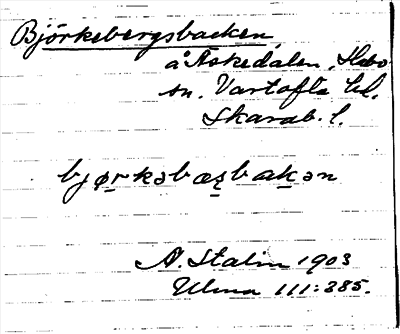 Björkebergsbacken
å Åskedalen, Habo
sn. Vartofta hd.
Skarab. l.
bjørkəbæꝛbakən
A. Stalin 1903
Ulma 111:285.